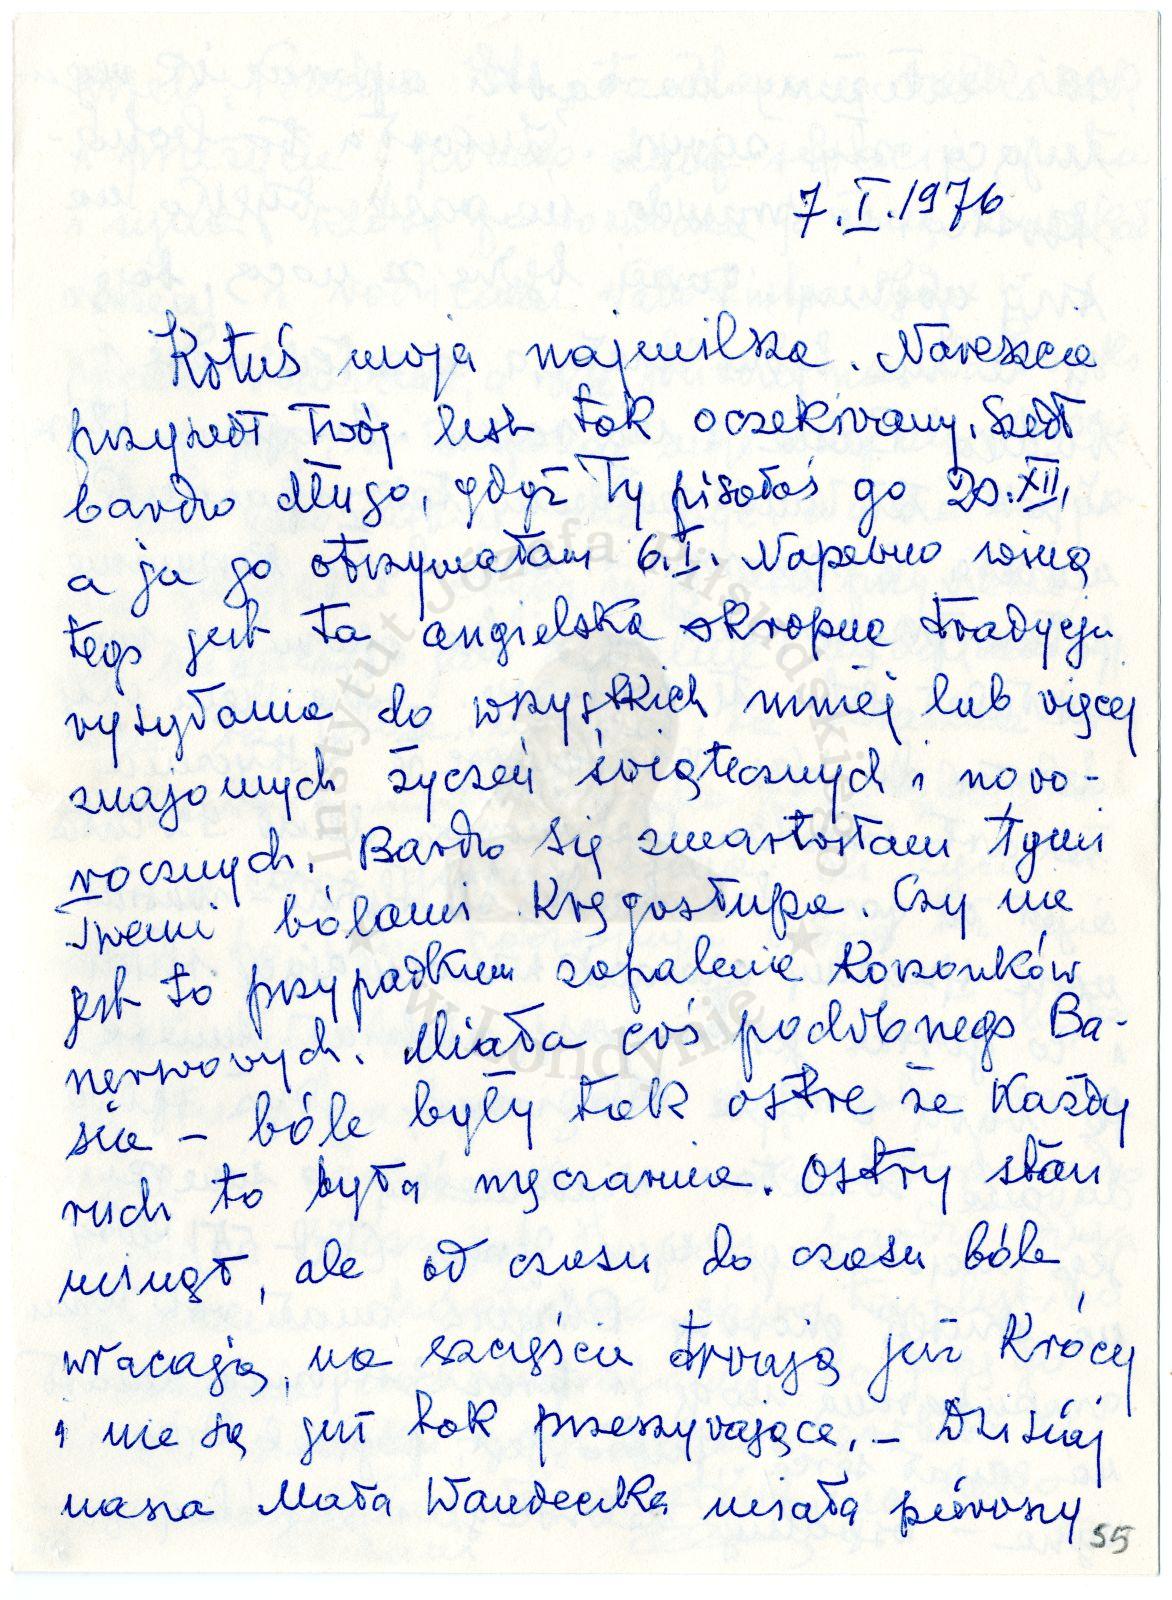 7.I.1976
Kotuś moja najmilsza. Nareszcie
przyszedł Twój list tak oczekiwany. Szedł
bardzo długo, gdyż Ty pisałaś go 20.XII,
a ja go otrzymałam 6.I. Napewno winą
tego jest ta angielska okropna tradycja
wysyłania do wszystkich mniej lub więcej
znajomych życzeń świątecznych i nowo-
rocznych. Bardzo się zmartwiłam tymi
Twemi bólami kręgosłupa. Czy nie
jest to przypadkiem zapalenie korzonków
nerwowych. Miała coś podobnego Ba-
sia – bóle były tak ostre że każdy
ruch to była męczarnia. Ostry stan
minął, ale od czasu do czasu bóle
wracają, na szczęście trwają już krócej
i nie są już tak przeszywające. – Dzisiaj
nasza Mała Wandeczka miała pierwszy
55
Instytut Józefa Piłsudskiego
w Londynie